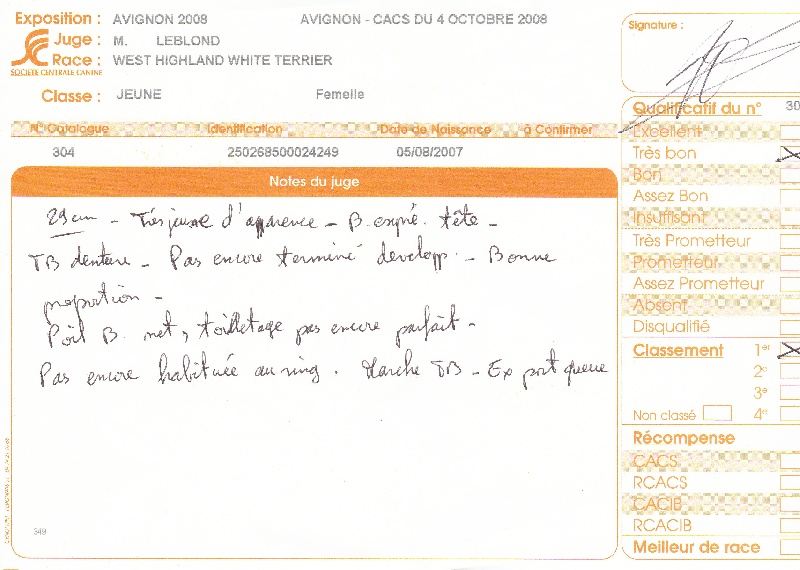 Exposition : AVIGNON 2008 AVIGNON - CACS DU 4 OCTOBRE 2008
Juge : M. LEBLOND
Race : WEST HIGHLAND WHITE TERRIER
SOCIÉTÉ CENTRALE CANINE
Classe : JEUNE Femelle
N° Catalogue Identification Date de Naissance à Confirmer
304 250268500024249 05/08/2007
Notes du juge
29 cm - Très jeune d'apparence - B. expré. tête -
TB denture - Pas encore terminé développ. - Bonne
proportion -
Poil B. net, toilletage pas encore parfait -
Pas encore habituée au ring. Marche TB - Ex port queue
349
Signature :
Qualificatif du n° 30
Excellent
Très bon
Bon
Assez Bon
Insuffisant
Très Prometteur
Prometteur
Assez Prometteur
Absent
Disqualifié
Classement 1er
2e
3e
Non classé 4e
Récompense
CACS
RCACS
CACIB
RCACIB
Meilleur de race